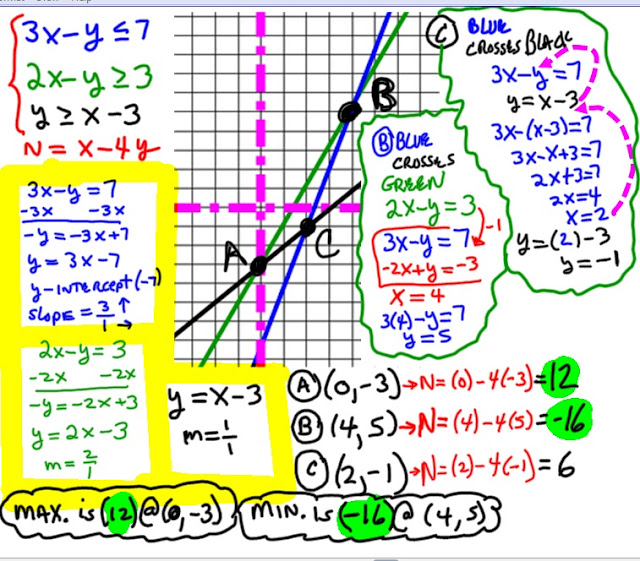 3x-y ≤ 7
2x-y ≥ 3
y ≥ x-3
N = x-4y
3x-y = 7
-3x -3x
-y = -3x+7
y = 3x-7
y-INTERCEPT (-7)
SLOPE = 3/1 ↑ →
2x-y = 3
-2x -2x
-y = -2x+3
y = 2x-3
m = 2/1
y = x-3
m = 1/1
A
B
C
Ⓑ BLUE
CROSSES
GREEN
2x-y = 3
-1
3x-y = 7
-2x+y = -3
x = 4
3(4)-y = 7
y = 5
Ⓒ BLUE
CROSSES BLACK
3x-y = 7
y = x-3
3x-(x-3) = 7
3x-x+3 = 7
2x+3 = 7
2x = 4
x = 2
y = (2)-3
y = -1
Ⓐ (0,-3) → N = (0)-4(-3) = 12
Ⓑ (4,5) → N = (4)-4(5) = -16
Ⓒ (2,-1) → N = (2)-4(-1) = 6
MAX. is (12) @ (0,-3)
MIN. is (-16) @ (4,5)